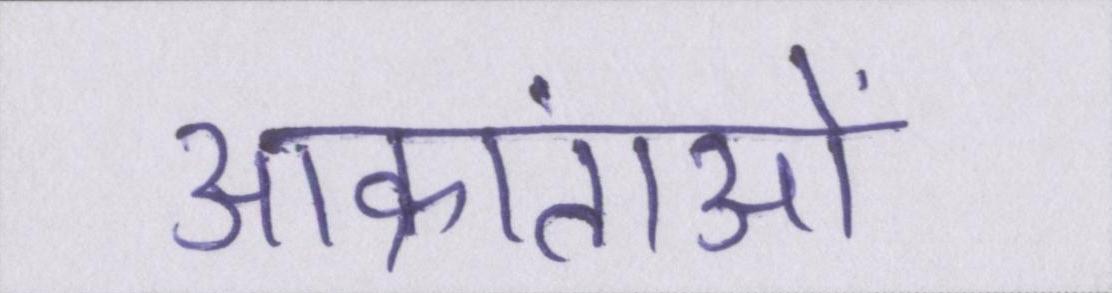 आक्रांताओं